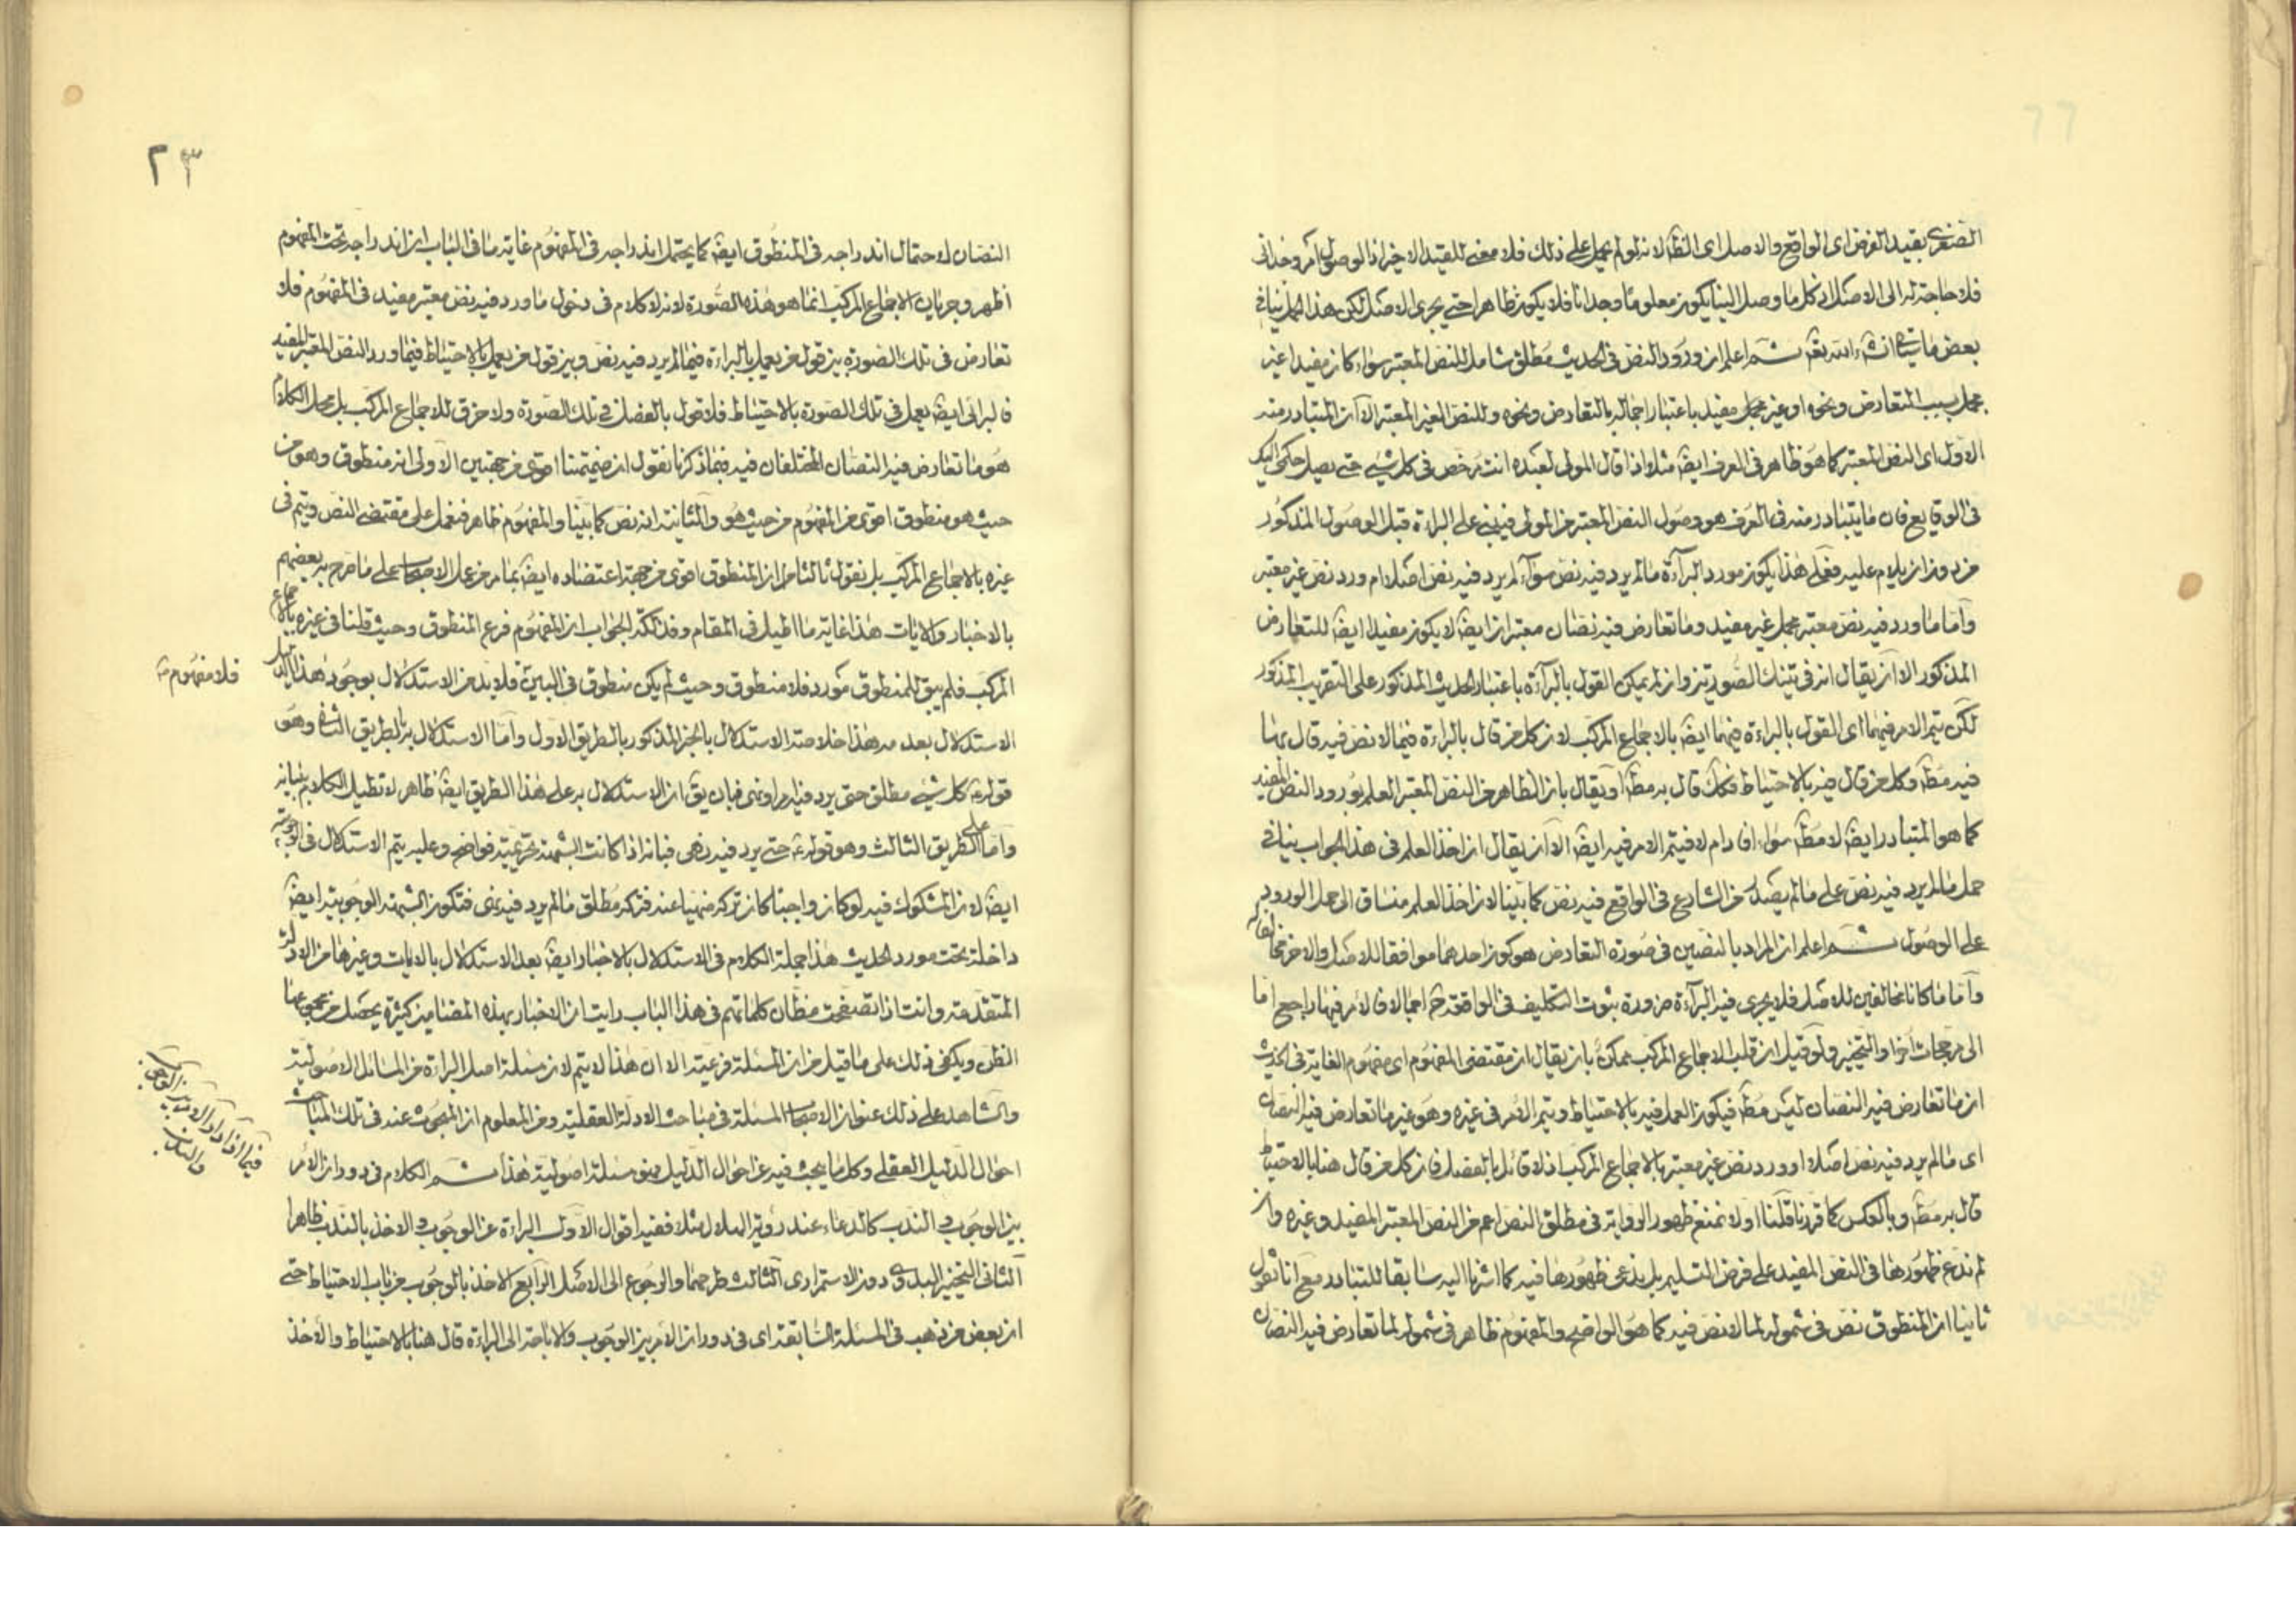 الصغرى بقيد الفرض اى الواقع والاصل اى الظة لانه لو لم يحمل على ذلك فلا معنى للقيد الاخير اذ الوصول امر وجدانى
فلا حاجة له الى الاصل اذ كل ما وصل الينا يكون معلوما وجدانا فلا يكون ظاهرا حتى يجرى الاصل لكن هذا الحمل ينافى
بعض ما سيجئ انشاء الله تعه ثم اعلم ان ورود النص فى الحديث مطلق شامل للنص المعتبر سواء كان مفيدا غير
مجمل بسبب التعارض ونحوه او غير مفيد باعتبار اجماله بالتعارض ونحوه وللنص الغير المعتبر الا ان المتبادر منه
الاول اى النص المعتبر كما هو ظاهر فى العرف ايضة مثلا اذا قال المولى لعبده انت مرخص فى كل شئ حتى يصل حكمى اليك
فى الوقايع فان ما يتبادر منه فى العرف هو وصول النص المعتبر من المولى فيبنى على البراءة قبل الوصول المذكور
من دون ان يلام عليه فعلى هذا يكون مورد البراءة ما لم يرد فيه نص سواء لم يرد فيه نص اصلا ام ورد نص غير معتبر
واما ما ورد فيه نص معتبر مجمل غير مفيد وما تعارض فيه نصان معتبران ايضة لا يكون مفيدا ايضة للتعارض
المذكور الا ان يقال انه فى تينك الصورتين وان لم يمكن القول بالبراءة باعتبار الحديث المذكور على التقريب المذكور
لكن يتم الامر فيهما اى القول بالبراءة فيهما ايضة بالاجماع المركب لان كل من قال بالبراءة فيما لا نص فيه قال بها
فيه مطة وكل من قال فيه بالاحتياط فكك قال به مطة او يقال بان الظاهر من النص المعتبر العلم بورود النص المفيد
كما هو المتبادر ايضة لا مطة سواء افاد ام لا فيتم الامر فيه ايضة الا ان يقال ان اخذ العلم فى هذا الجواب ينافى
حمل ما لم يرد فيه نص على ما لم يصل من الشارع فى الواقع فيه نص كما بينا لان اخذ العلم مناف الى حمل الورود
على الوصول ثم اعلم ان المراد بالنصين فى صورة التعارض هو كون احدهما موافقا للاصل والاخر مخالفا له
واما ما كانا مخالفين للاصل فلا يجرى فيه البراءة ضرورة ثبوت التكليف فى الواقع اجمالا فالامر فيها راجع اما
الى مرجحات اخر او التخيير ولو قيل ان قلب الاجماع المركب ممكن بان يقال ان مقتضى المفهوم اى مفهوم الغاية فى الحديث
ان ما تعارض فيه النصان ليس مطة فيكون العمل فيه بالاحتياط ويتم الامر فى غيره وهو غير ما تعارض فيه النصان
اى ما لم يرد فيه نص اصلا او ورد نص غير معتبر بالاجماع المركب اذ لا قائل بالفصل فان كل من قال هنا بالاحتياط
قال به مطة وبالعكس كما قررنا قلنا اولا نمنع ظهور الرواية فى مطلق النص اعم من النص المعتبر المفيد وغيره وان
لم ندع ظهورها فى النص المفيد على فرض التسليم بل ندعى ظهورها فيه كما اشرنا اليه سابقا للتبادر مع انا نقول
ثانيا ان المنطوق نص فى شموله لما لا نص فيه كما هو الواضح والمفهوم ظاهر فى شموله لما تعارض فيه النصان
٢٣
النصان لاحتمال اندراجه فى المنطوق ايضة كما يحتمل اندراجه فى المفهوم غاية ما فى الباب ان اندراجه تحت المفهوم
اظهر وجريان الاجماع المركب انما هو هذه الصورة لانه لا كلام فى دخول ما ورد فيه نص معتبر مفيد فى المفهوم فلا
تعارض فى تلك الصورة بين قول من يعمل بالبراءة فيما لم يرد فيه نص وبين قول من يعمل بالاحتياط فيما ورد النص المعتبر المفيد
فالبرائى ايضة يعمل فى تلك الصورة بالاحتياط فلا قول بالفصل فى تلك الصورة ولا خرق للاجماع المركب بل محل الكلام
هو ما تعارض فيه النصان المختلفان فيه فيما ذكرنا نقول ان ضميمتنا اقوى من جهتين الاولى انه منطوق وهو من
حيث هو منطوق اقوى من المفهوم من حيث هو والثانية انه نص كما بينا والمفهوم ظاهر فنعمل على مقتضى النص ويتم فى
غيره بالاجماع المركب بل نقول ثالثا ان المنطوق اقوى من جهة اعتضاده ايضة بما مر من عمل الاصحاب على ما صرح به بعضهم
بالاخبار والايات هذا غاية ما اطيل فى المقام وفذلكة الجواب ان المفهوم فرع المنطوق وحيث قلنا فى غيره بالاجماع
المركب فلم يبق للمنطوق مورد فلا منطوق وحيث لم يكن منطوق فى البين فلا بد من الاستدلال بوجود هذا الدليل
فلا مفهوم
الاستدلال بعدمه هذا خلاصة الاستدلال بالخبر المذكور بالطريق الاول واما الاستدلال به بالطريق الثانى وهو
قوله كل شئ مطلق حتى يرد فيه امر او نهى فبان يق ان الاستدلال به على هذا الطريق ايضة ظاهر لا نطيل الكلام ببيانه
واما على الطريق الثالث وهو قوله حتى يرد فيه نهى فبانه اذا كانت الشبهة تحريمية فواضح وعليه يتم الاستدلال فى الوجوبية
ايضة لان المشكوك فيه لو كان واجبا كان تركه منهيا عنه فتركه مطلق ما لم يرد فيه نهى فتكون الشبهة الوجوبية ايضة
داخلة تحت مورد الحديث هذا جملة الكلام فى الاستدلال بالاخبار ايضة بعد الاستدلال بالايات وغيرها من الادلة
المتقدمة وانت اذا تصفحت مظان كلماتهم فى هذا الباب رايت ان الاخبار بهذه المضامين كثيرة يحصل من مجموعها
الظن ويكفى ذلك على ما قيل من ان المسئلة فرعية الا ان هذا لا يتم لان مسئلة اصل البراءة من المسائل الاصولية
والشاهد على ذلك عنوان الاصحاب المسئلة فى مباحث الادلة العقلية ومن المعلوم ان المبحوث عنه فى تلك المباحث
احوال الدليل العقلى وكل ما يبحث فيه عن احوال الدليل فهو مسئلة اصولية هذا ثم الكلام فى دوران الامر
فيما اذا دار الامر بين الوجوب والندب
بين الوجوب والندب كالدعاء عند رؤية الهلال مثلا ففيه اقوال الاول البراءة عن الوجوب والاخذ بالندب ظاهرا
الثانى التخيير البدوى دون الاستمرارى الثالث طرحهما والرجوع الى الاصل الرابع الاخذ بالوجوب من باب الاحتياط حتى
ان بعض من ذهب فى المسئلة السابقة اى فى دوران الامر بين الوجوب والاباحة الى البراءة قال هنا بالاحتياط والاخذ